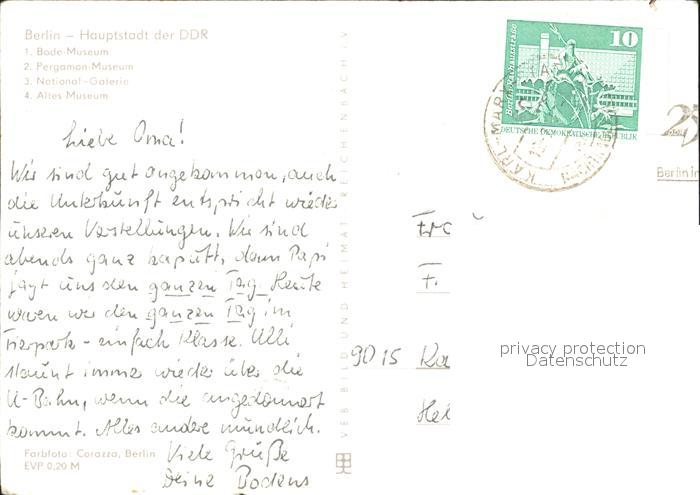 Berlin – Hauptstadt der DDR
1. Bode-Museum
2. Pergamon-Museum
3. National-Galerie
4. Altes Museum
Liebe Oma!
Wir sind gut angekommen, auch
die Unterkunft entspricht wieder
unseren Vorstellungen. Wir sind
abends ganz kaputt, denn Papi
jagt uns den ganzen Tag. Heute
waren wir den ganzen Tag im
Tierpark – einfach Klasse. Ulli
staunt immer wieder über die
U-Bahn, wenn die angedonnert
kommt. Alles andere mündlich.
Viele Grüße
Deine Bodens
Farbfoto: Corazza, Berlin
EVP 0,20 M
VEB BILD UND HEIMAT REICHENBACH I. V.
10
Berlin, Rathausstraße
DEUTSCHE DEMOKRATISCHE REPUBLIK
KARL-MARX
Berlin in
F.
9015 Ka
Hei
privacy protection
Datenschutz